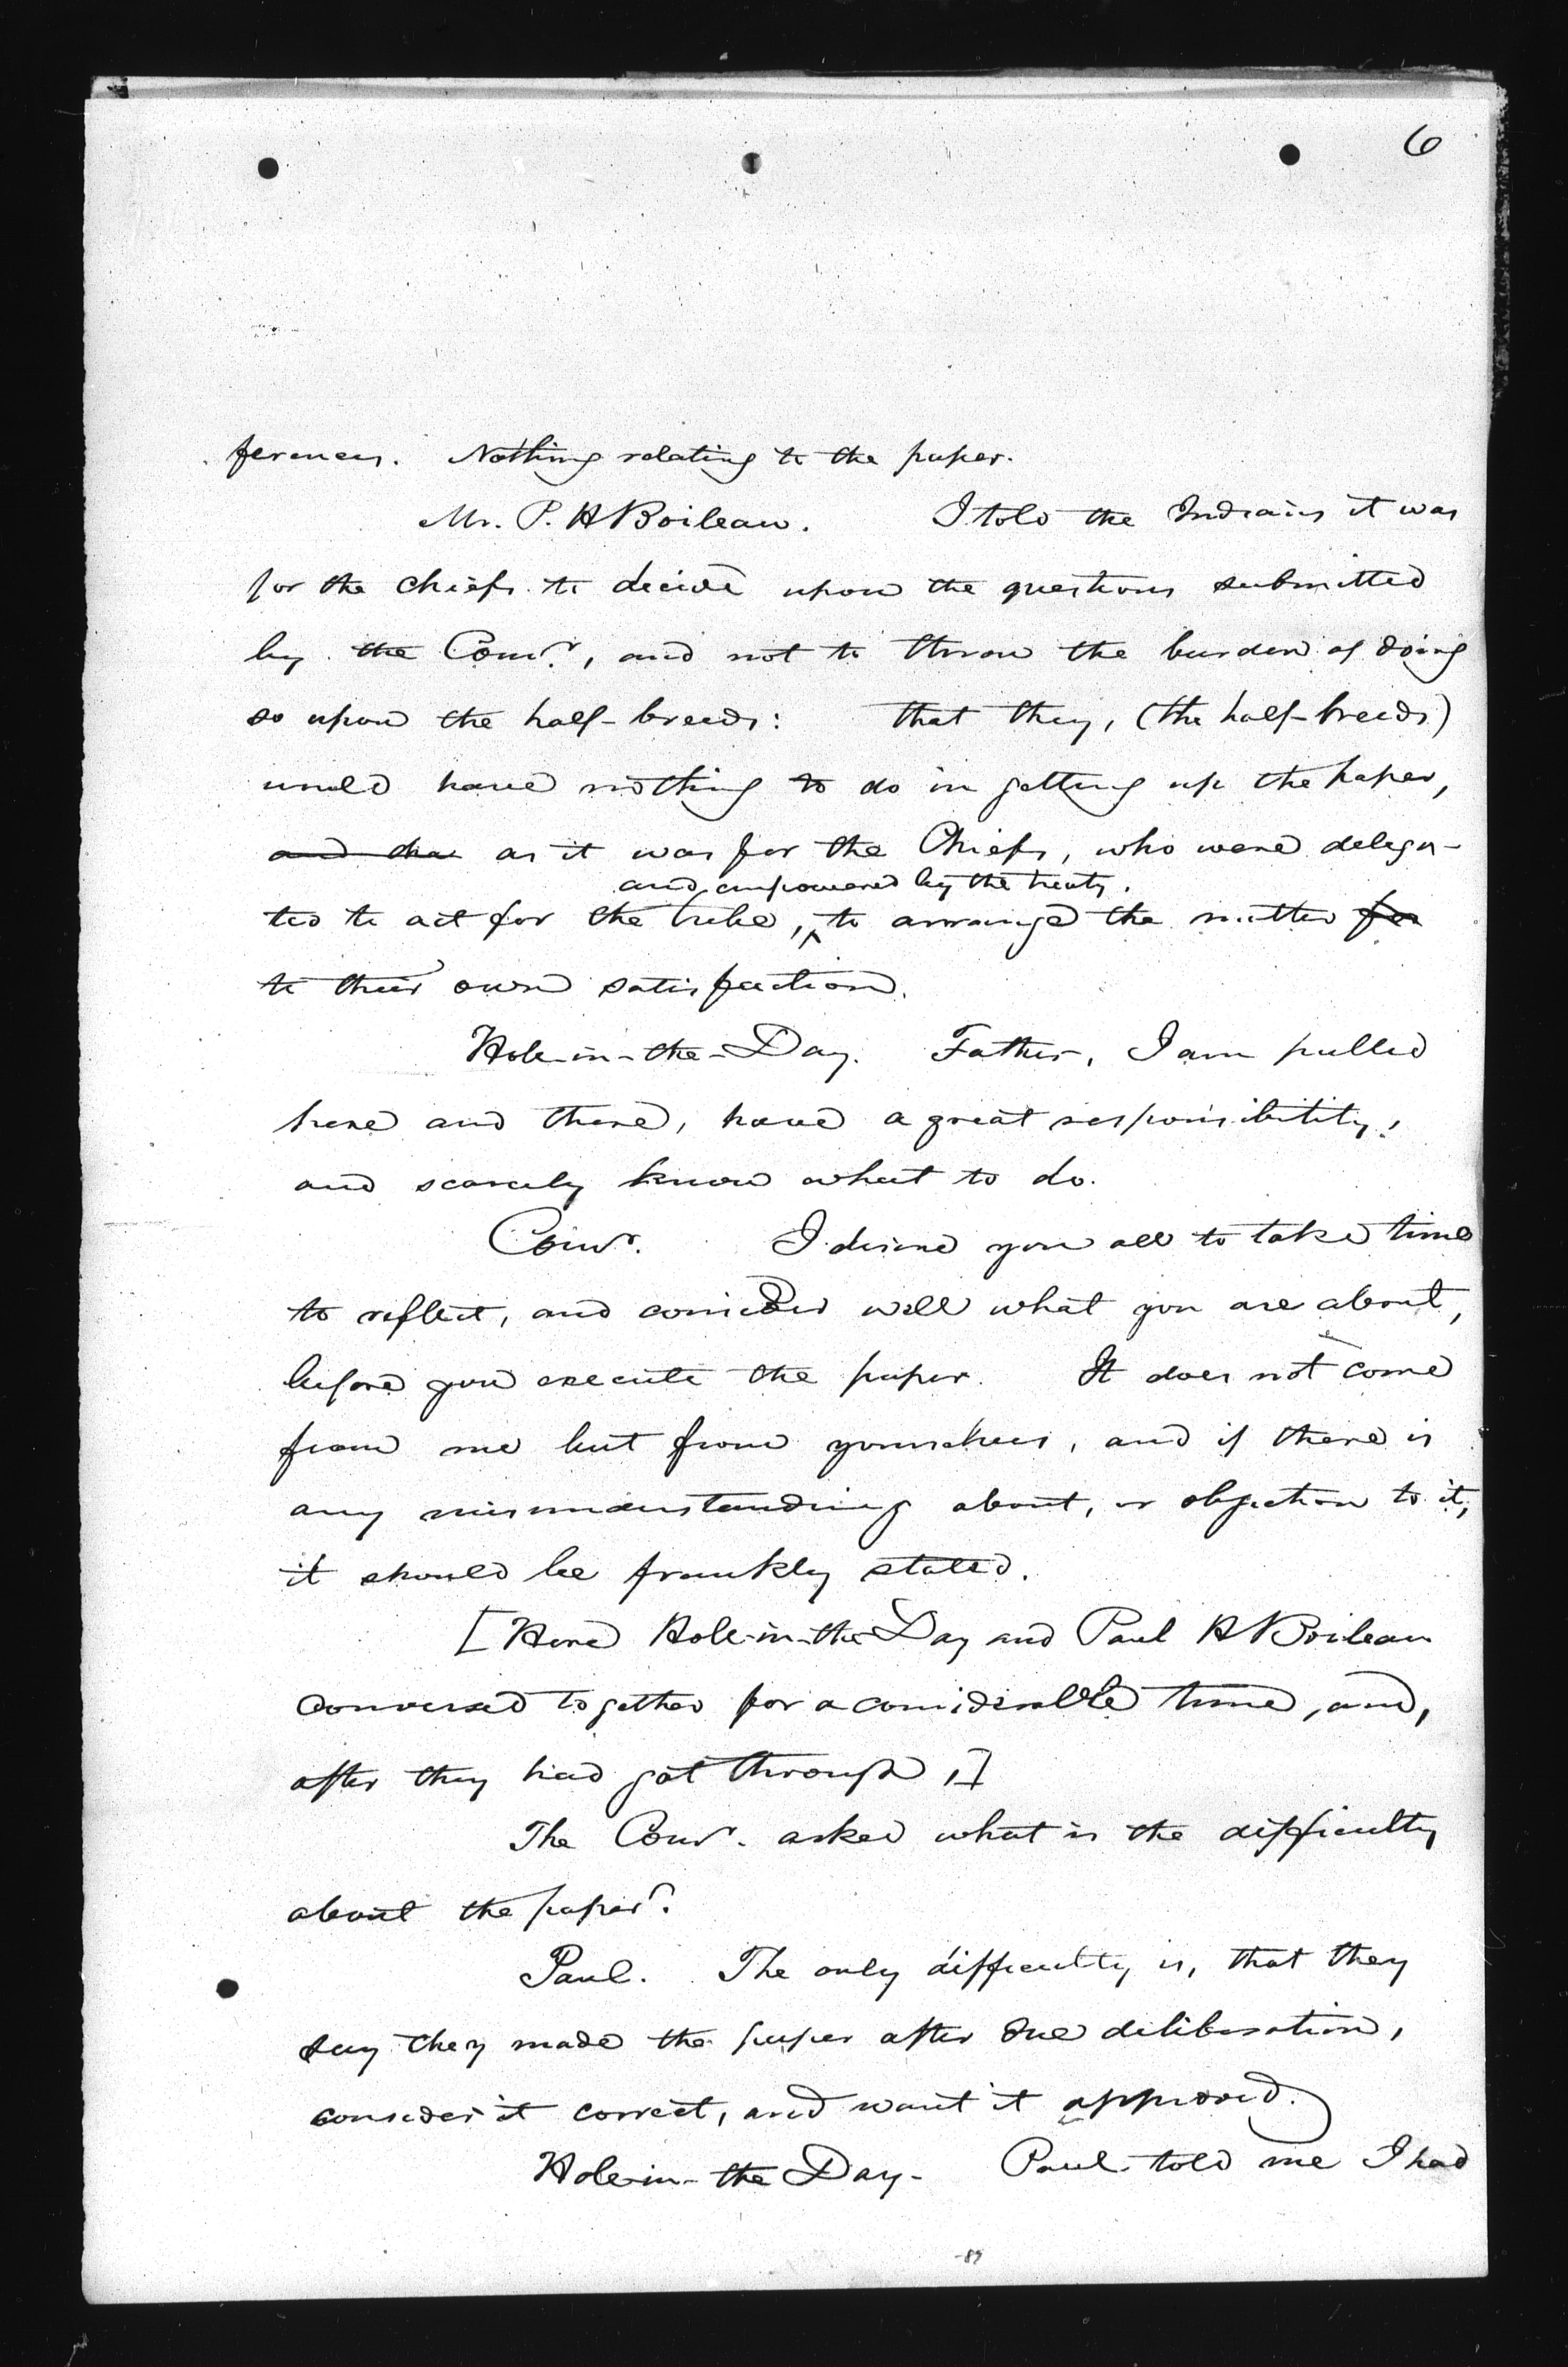 6
ferences. Nothing relating to the paper.
Mr. P. H Boileau. I told the Indians it was
for the chiefs to decide upon the questions submitted
by the Comr., and not to throw the burden of doing
so upon the half-breeds: that they, (the half-breeds)
would have nothing to do in getting up the paper,
and as it was for the Chiefs, who were delega-
and empowered by the treaty.
ted to act for the tribe, to arrange the matter for
to their own satisfaction.
Hole-in-the-Day. Father, I am pulled
here and there, have a great responsibility,
and scarcely know what to do.
Comr. I desire you all to take time
to reflect, and consider well what you are about,
before you execute the paper. It does not come
from me but from yourselves, and if there is
any misunderstanding about, or objection to it,
it should be frankly stated.
[Here Hole-in-the-Day and Paul H Boileau
conversed together for a considerable time, and,
after they had got through,]
The Comr. asked what is the difficulty
about the paper?
Paul. The only difficulty is, that they
say they made the paper after due deliberation,
consider it correct, and want it approved.
Hole-in-the Day- Paul told me I had
-89